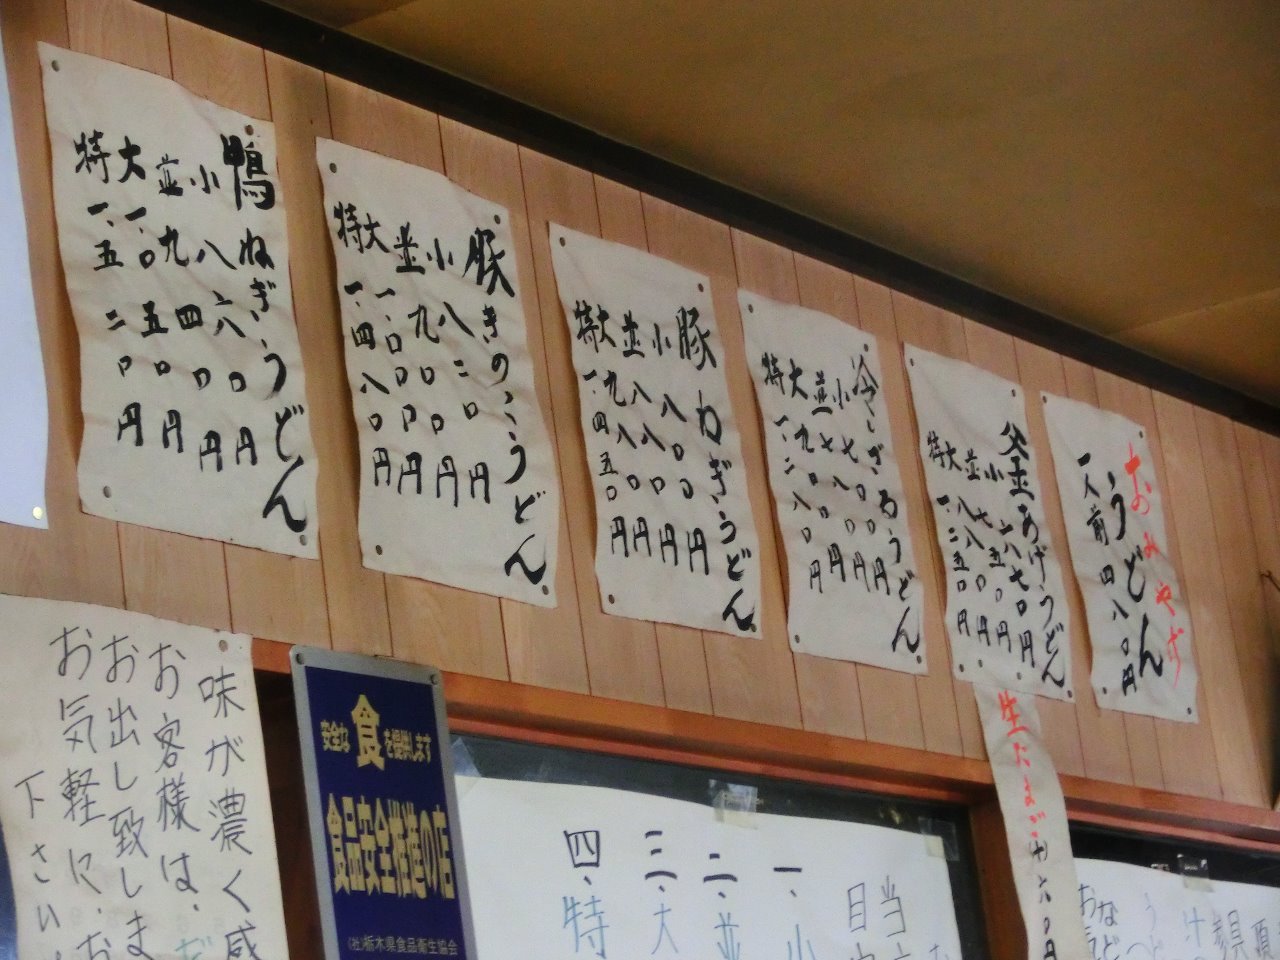 鴨ねぎうどん
小 八六〇円
並 九四〇円
大 一、〇五〇円
特 一、五二〇円
豚きのこうどん
小 八二〇円
並 九〇〇円
大 一、〇〇〇円
特 一、四八〇円
豚ねぎうどん
小 八〇〇円
並 八八〇円
大 九八〇円
特 一、四五〇円
冷しざるうどん
小 七〇〇円
並 七八〇円
大 九〇〇円
特 一、二八〇円
釜あげうどん
小 六七〇円
並 七五〇円
大 八八〇円
特 一、二五〇円
おみやげ
うどん
一人前 四八〇円
生たまご 六〇円
味が濃く感
お客様は、だ
お出し致しま
お気軽に、お
下さい。
安全な食を提供します
食品安全推進の店
(社)栃木県食品衛生協会
当
日
一、小
二、並
三、大
四、特